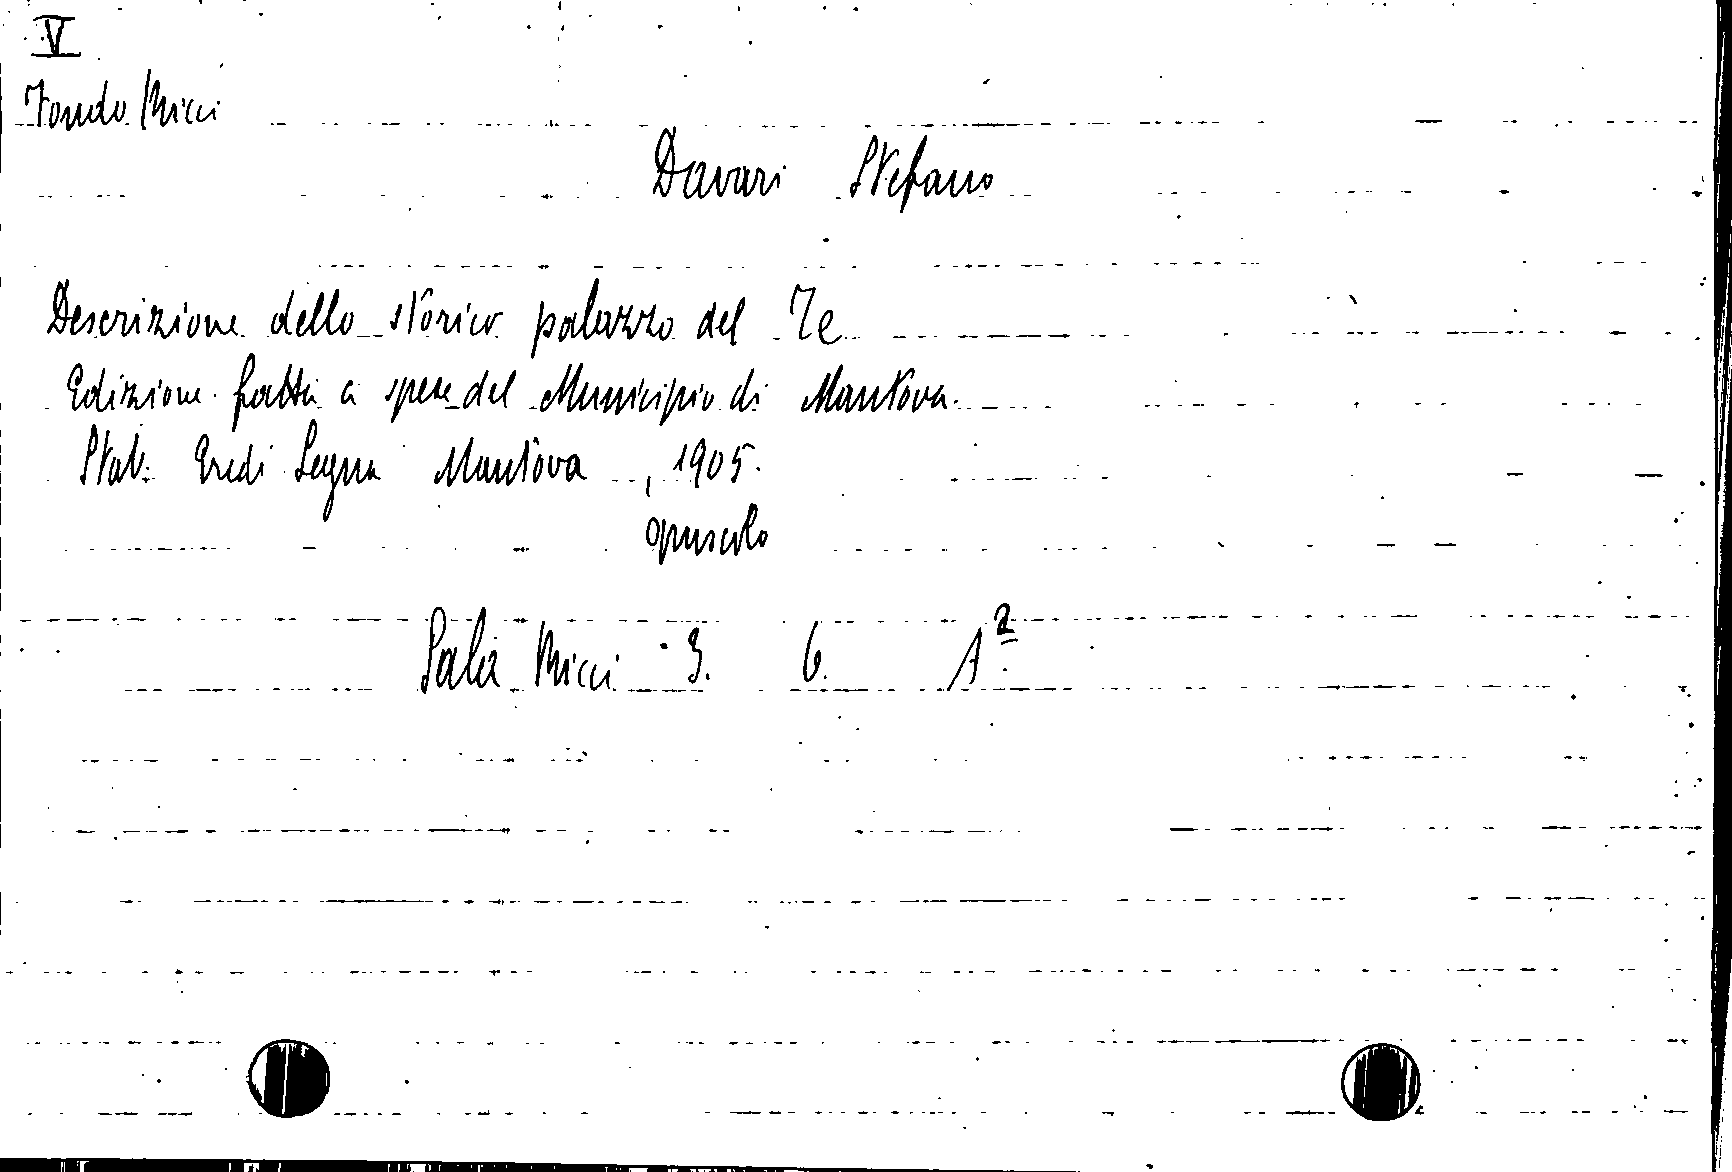 V
Fondo Ricci
Davari Stefano
Descrizione dello storico palazzo del Te
Edizione fatta a spese del Municipio di Mantova.
Stab. Eredi Segna Mantova, 1905.
opuscolo
Sala Ricci 3. 6. A²